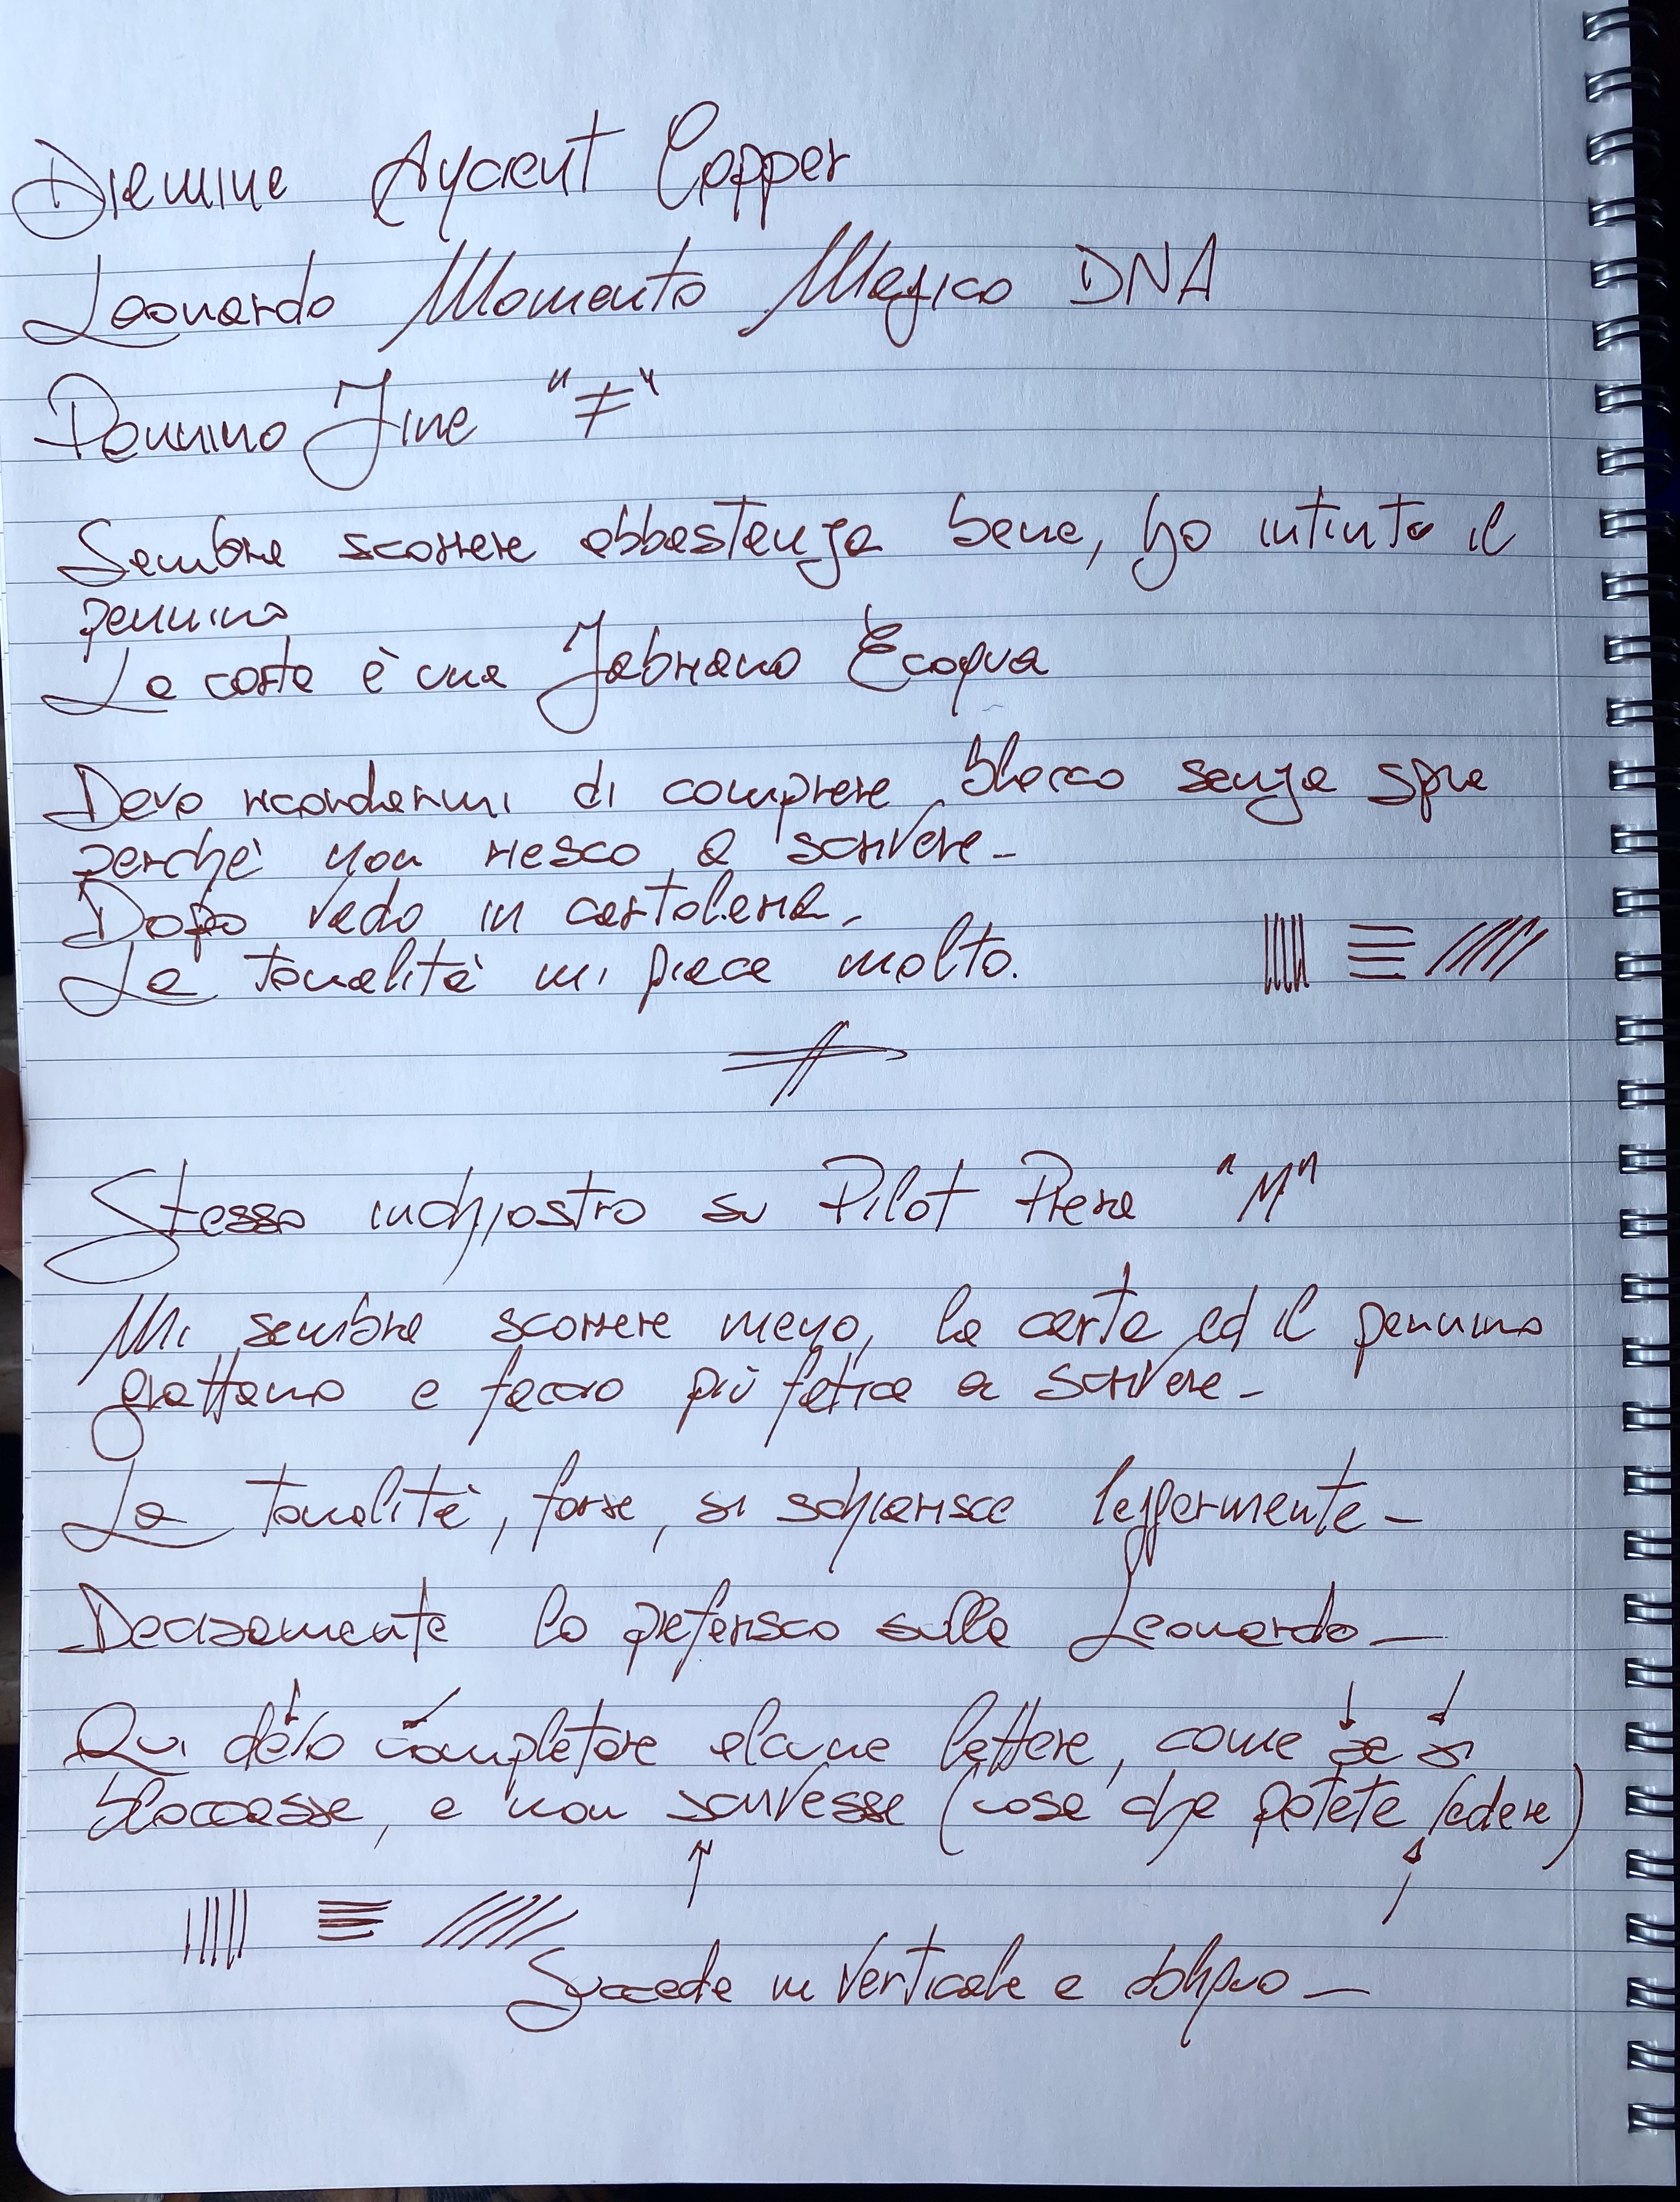 Diamine Aycent Copper
Leonardo Momento Magico DNA
Pennino Fine "F"
Sembra scorrere abbastanza bene, ho intinto il
pennino
La carta è una Fabriano Ecoqua
Devo ricordarmi di comprare blocco senza spire
perchè non riesco a scrivere-
Dopo vado in cartoleria.
La tonalità mi piace molto.
Stesso inchiostro su Pilot Prera "M"
Mi sembra scorrere meno, la carta ed il pennino
grattano e faccio più fatica a scrivere-
La tonalità, forse, si schiarisce leggermente-
Decisamente lo preferisco sulla Leonardo-
Qui devo completare alcune lettere, come se si
bloccasse, e non scrivesse (cosa che potete vedere)
Succede in verticale e obliquo-